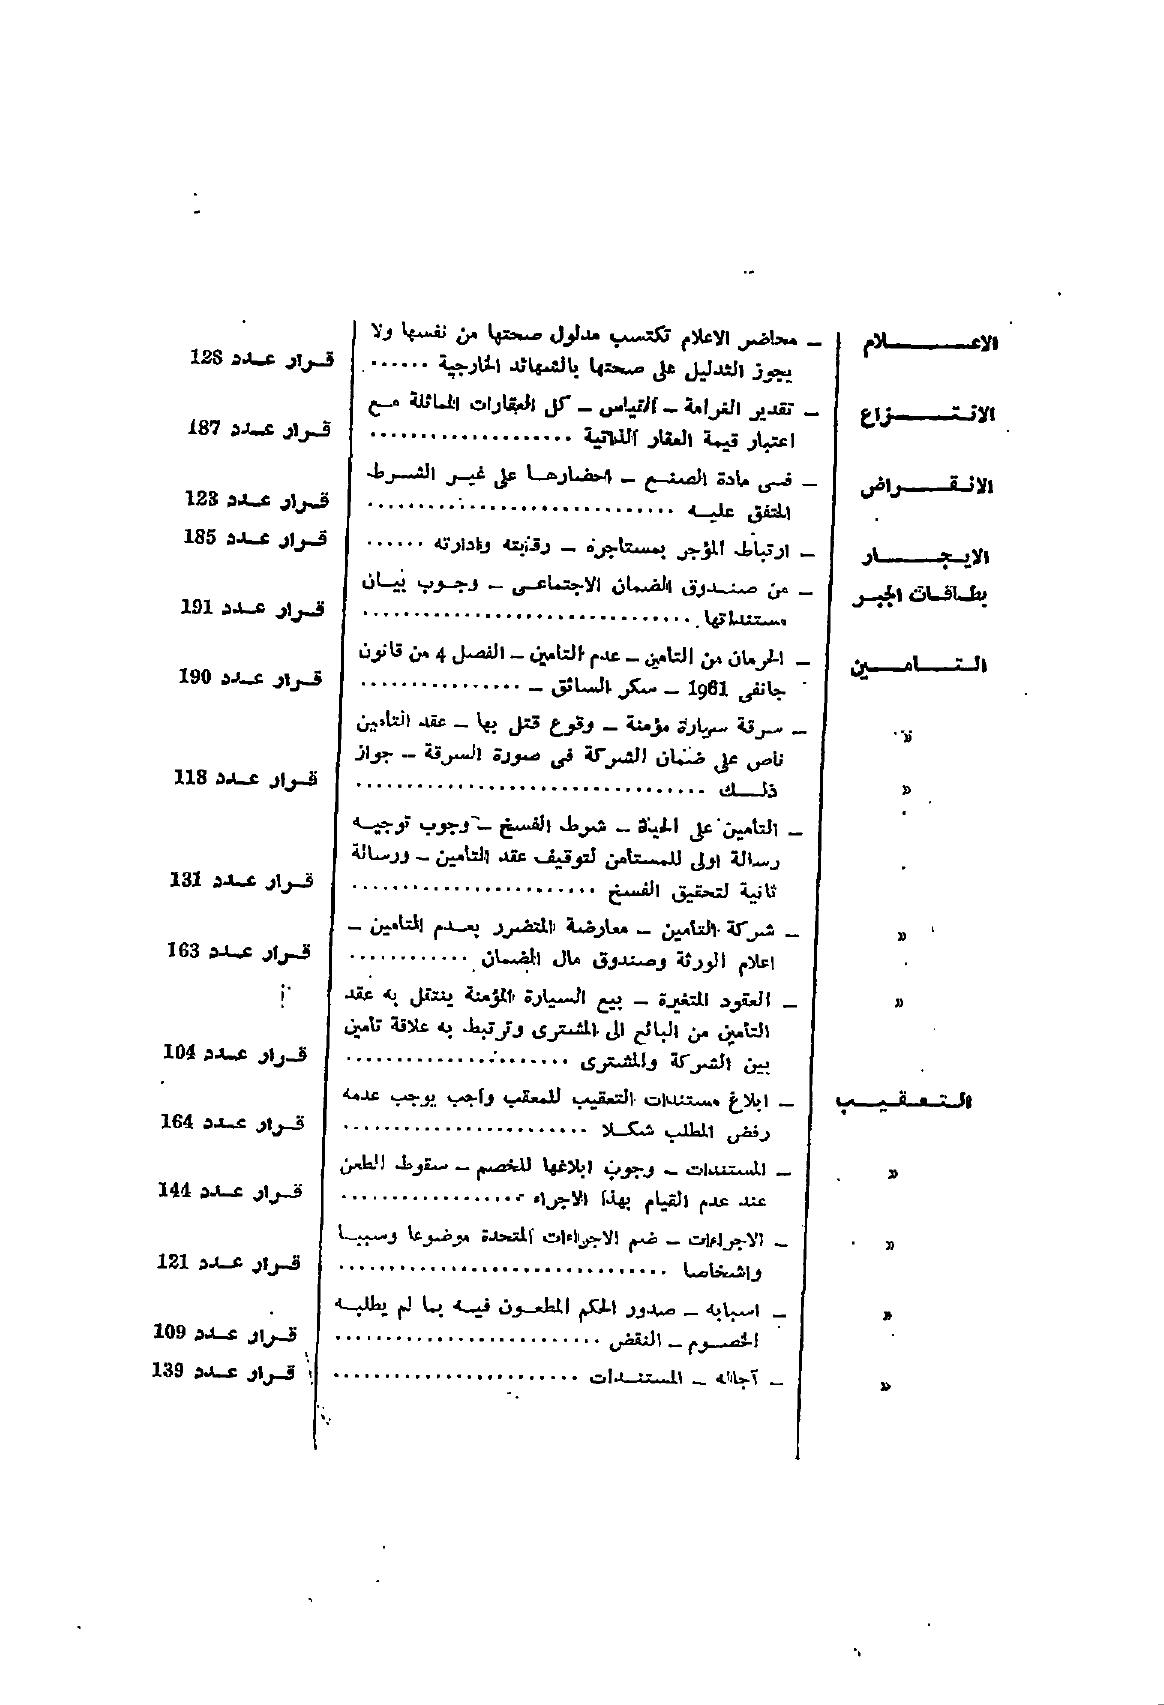 الاعـــــــــلام – محاضر الاعلام تكتسب مدلول صحتها من نفسها ولا
يجوز التدليل على صحتها بالشهائد الخارجية ...... قـرار عـدد 128
الانـتــــــزاع – تقدير الغرامة – القياس – كل العقارات المماثلة مـع
اعتبار قيمة العقار الذاتية .................. قـرار عـدد 187
الانـقــــراض – فـى مادة الصنـع – احضارهـا على غيـر الشـرط
المتفق عليـه ............................ قـرار عـدد 123
الايـجــــــار – ارتباط المؤجر بمستاجره – رقابته وادارته ...... قـرار عـدد 185
بطـاقـات الجبـر – من صنـدوق الضمان الاجتماعـى – وجـوب بيـان
مستنداتها .............................. قـرار عـدد 191
الـتــــامــيـن – الحرمان من التامين – عدم التامين – الفصل 4 من قانون
جانفى 1961 – سكر السائق – ............... قـرار عـدد 190
« – سرقة سيارة مؤمنة – وقوع قتل بها – عقد التامين
ناص على ضمان الشركة فى صورة السرقة – جواز
« ذلـــك ................................ قـرار عـدد 118
– التامين على الحياة – شرط الفسخ – وجوب توجيـه
رسالة اولى للمستامن لتوقيف عقد التامين – ورسالة
ثانية لتحقيق الفسخ ...................... قـرار عـدد 131
« – شركة التامين – معارضة المتضرر بعـدم التامين –
اعلام الورثة وصندوق مال الضمان ............ قـرار عـدد 163
« – العقود المتغيرة – بيع السيارة المؤمنة ينتقل به عقد
التامين من البائع الى المشترى وترتبط به علاقة تامين
بين الشركة والمشترى .................... قـرار عـدد 104
الـتـعـقـيـب – ابلاغ مستندات التعقيب للمعقب واجب يوجب عدمه
رفض المطلب شكـلا ...................... قـرار عـدد 164
« – المستندات – وجوب ابلاغها للخصم – سقوط الطعن
عند عدم القيام بهذا الاجراء ................ قـرار عـدد 144
« – الاجراءات – ضم الاجراءات المتحدة موضوعا وسببـا
واشخاصا .............................. قـرار عـدد 121
« – اسبابه – صدور الحكم المطعـون فيـه بمـا لم يطلبـه
الخصـوم – النقض ........................ قـرار عـدد 109
« – آجاله – المستنـدات ...................... قـرار عـدد 139